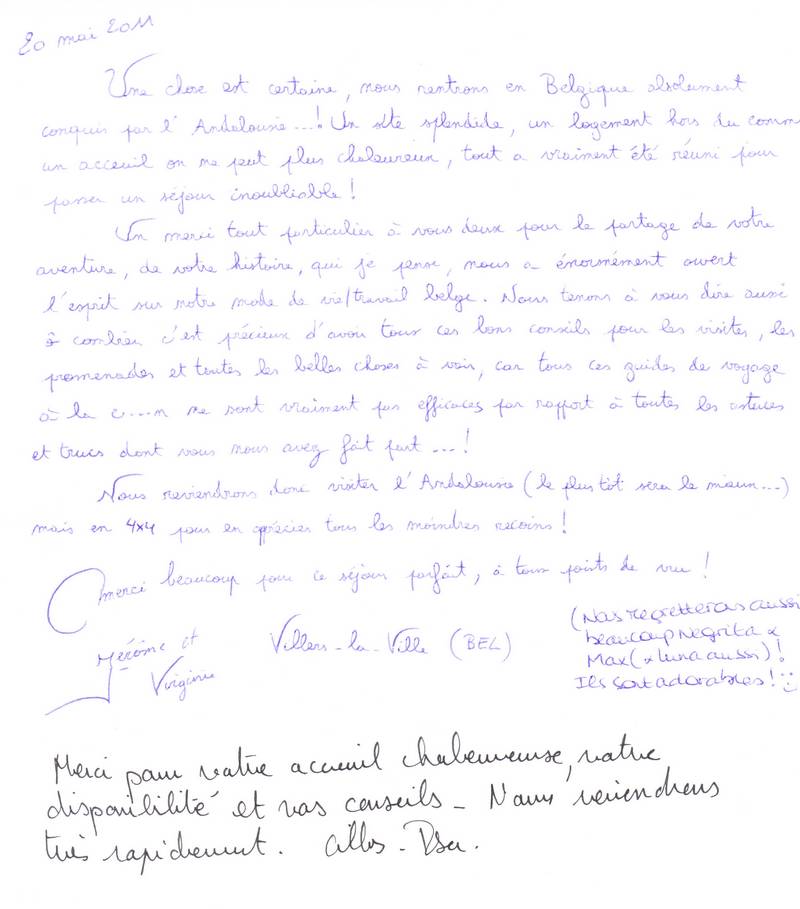 20 mai 2011
Une chose est certaine, nous rentrons en Belgique absolument
conquis par l'Andalousie...! Un site splendide, un logement hors du comm
un acceuil on ne peut plus chaleureux, tout a vraiment été réuni pour
passer un séjour inoubliable!
Un merci tout particulier à vous deux pour le partage de votre
aventure, de votre histoire, qui je pense, nous a énormément ouvert
l'esprit sur notre mode de vie/travail belge. Nous tenons à vous dire aussi
combien c'est précieux d'avoir tous ces bons conseils pour les visites, les
promenades et toutes les belles choses à voir, car tous ces guides de voyage
à la c...n ne sont vraiment pas efficaces par rapport à toutes les astuces
et trucs dont vous nous avez fait part...!
Nous reviendrons donc visiter l'Andalousie (le plus tôt sera le mieux...)
mais en 4x4 pour en apprécier tous les moindres recoins!
Merci beaucoup pour ce séjour parfait, à tous points de vue!
Jérôme et
Virginie
Villers-la-Ville (BEL)
(Nous regretterons aussi
beaucoup Negrita &
Max (& luna aussi)!
Ils sont adorables! :)
Merci pour votre accueil chaleureuse, votre
disponibilité et vos conseils - Nous reviendrons
très rapidement.